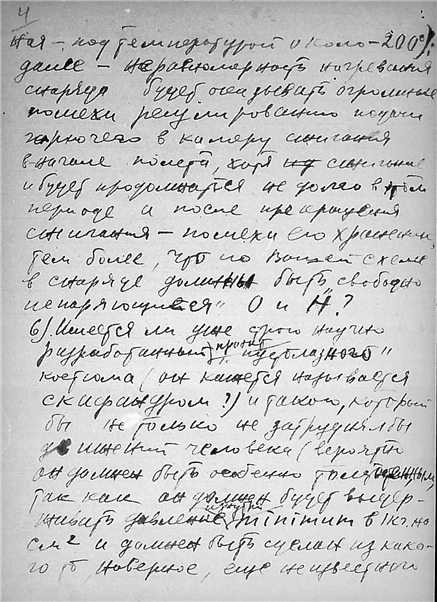 4
ная – под температурой около – 200°);
далее – неравномерность нагревания
снаряда будет оказывать огромные
помехи регулированию подачи
горючего в камеру сжигания
в начале полета, хотя сжигание
и будет продолжатся не долго в этом
периоде и после прекращения
сжигания – помехи его хранению,
тем более, что по Вашей схеме
в снаряде должны быть "свободно
испаряющиеся" О и Н?
6). Имеется ли уже строго научно
разработанный проэкт "пустолазного"
костюма (он кажется называется
скафандром?) и такого, который
бы не только не затруднял бы
движений человека (вероятно
он должен быть особенно
так как он должен будет выдер-
живать давление изнутри minimum в 1 кг. на
см² и должен быть сделан из како-
го то, наверное, еще неизвестного